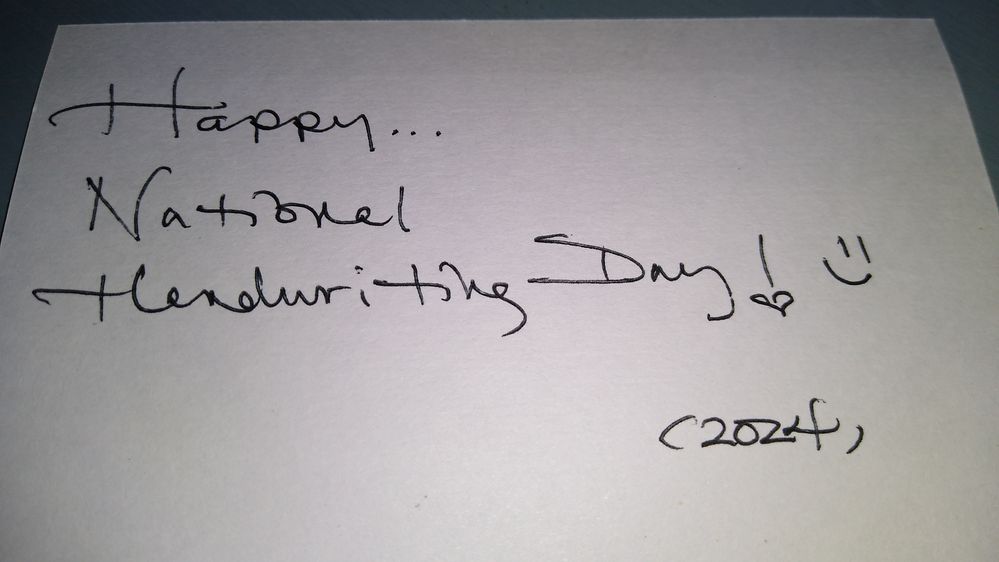 Happy...
National
Handwriting Day! :)
(2024)